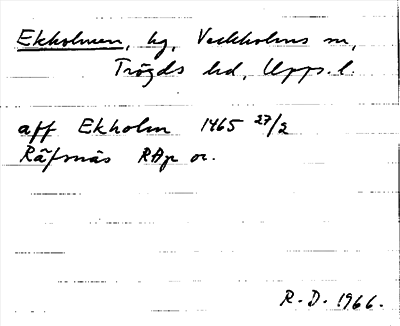 Ekholmen, hg, Veckholms sn,
Trögds hd, Upps. l.
aff Ekholm 1465 27/2
Räfsnäs RAp or.
R. D. 1966.